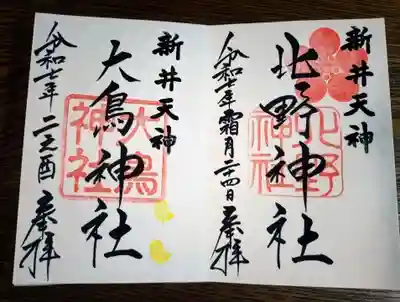 新井天神
北野神社
北野神社
令和七年霜月二十四日
奉拝
新井天神
大鳥神社
大鳥神社
令和七年 二之酉
奉拝